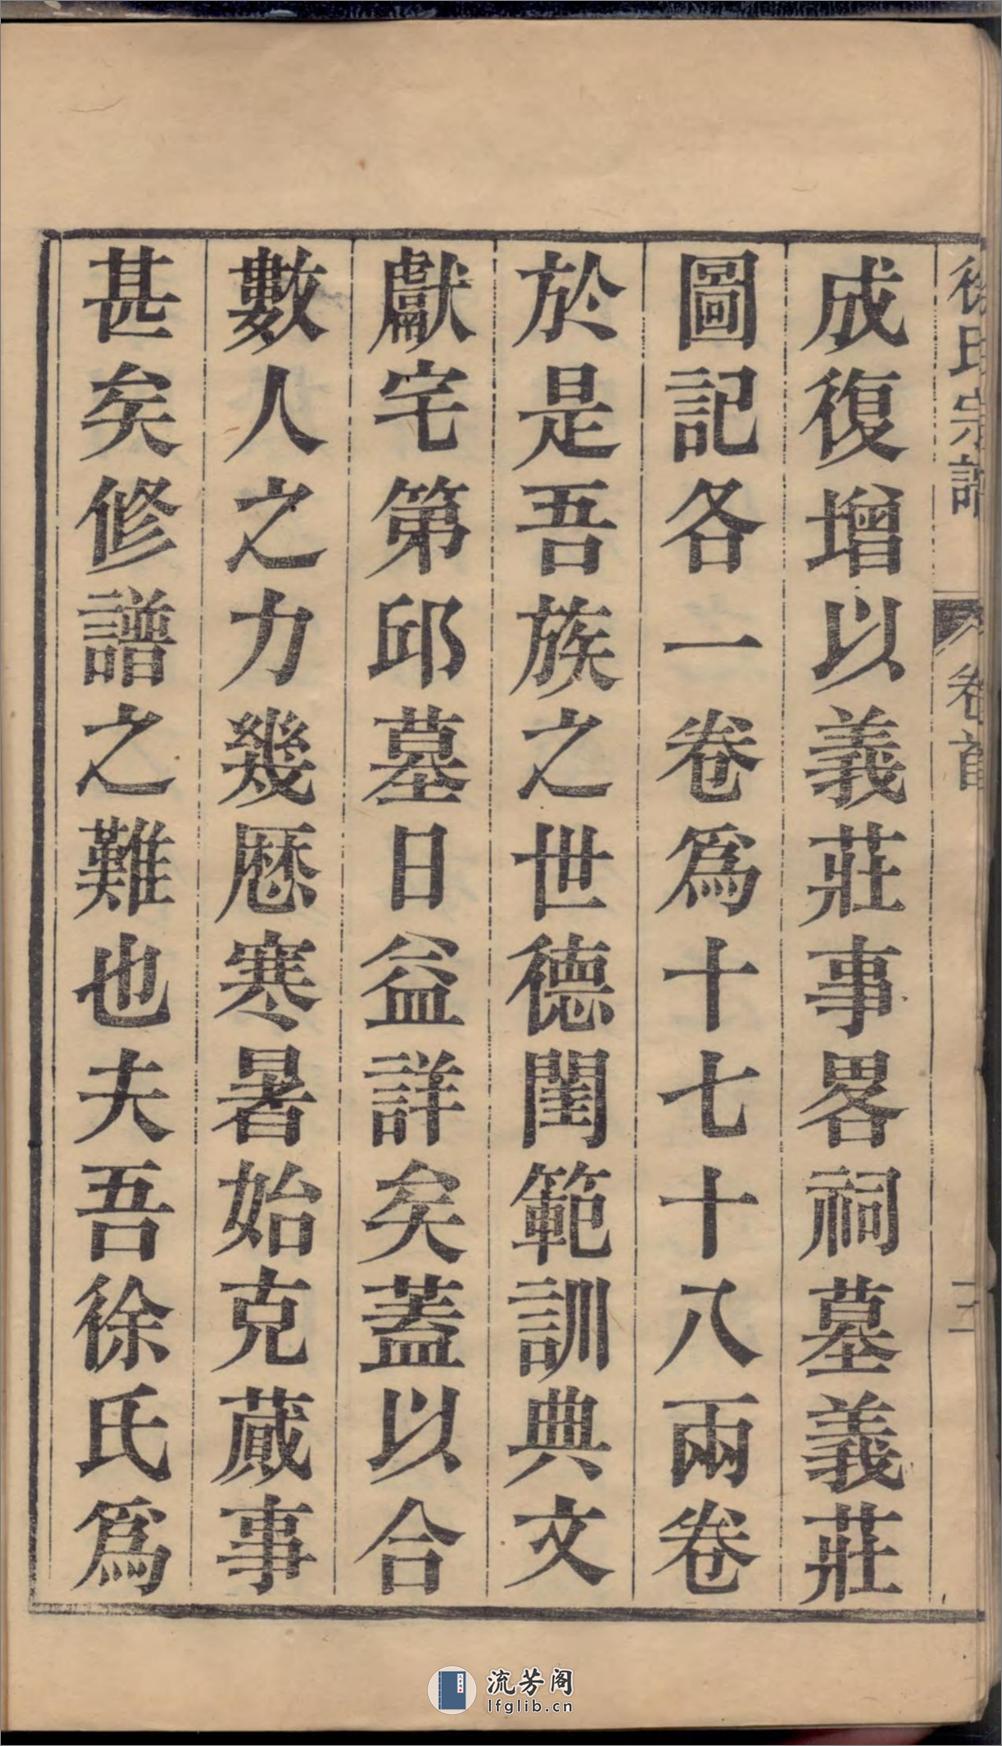 徐氏宗譜 卷首 三
成復增以義莊事畧祠墓義莊
圖記各一卷爲十七十八兩卷
於是吾族之世德閨範訓典文
獻宅第邱墓日益詳矣蓋以合
數人之力幾厯寒暑始克蕆事
甚矣修譜之難也夫吾徐氏爲
流芳阁
lfglib.cn